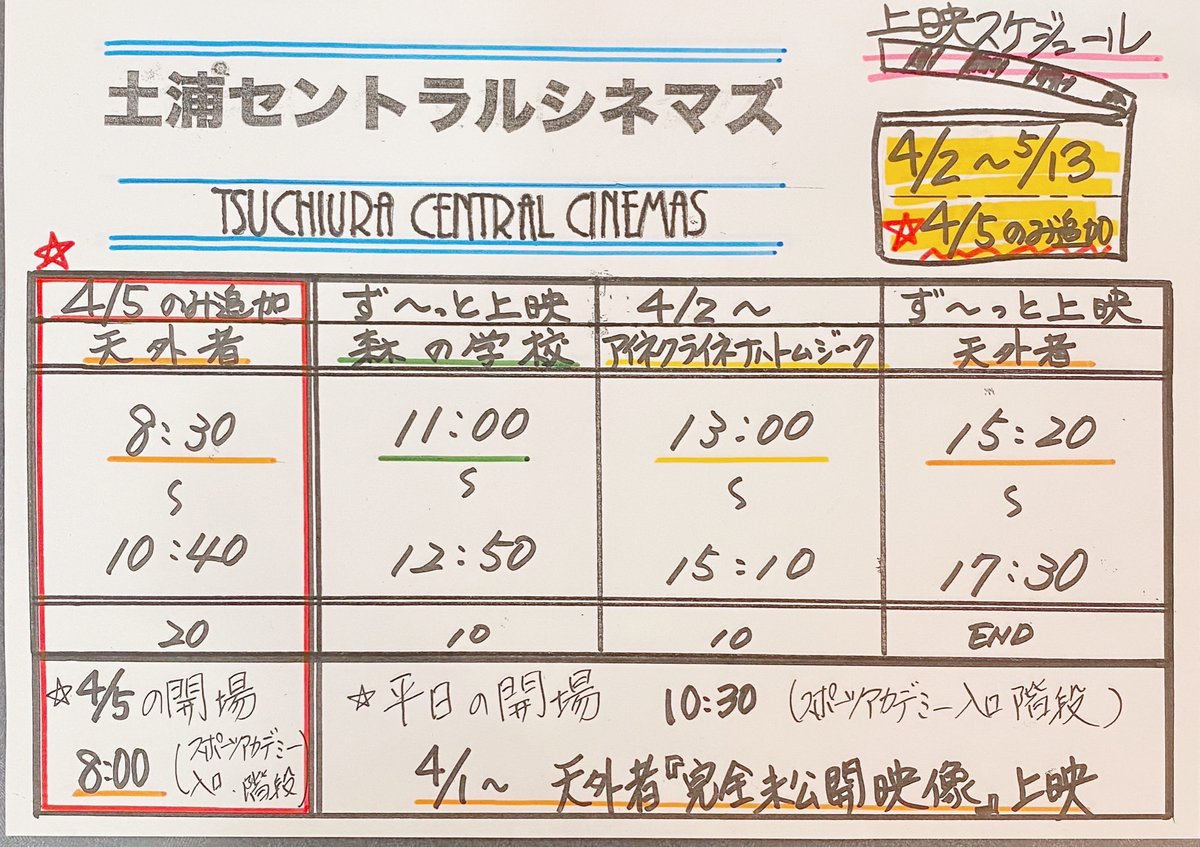 上映スケジュール
土浦セントラルシネマズ
TSUCHIURA CENTRAL CINEMAS
4/2～5/13
☆4/5のみ追加
☆
4/5のみ追加 ず～っと上映 4/2～ ず～っと上映
天外者 森の学校 アイネクライネナハトムジーク 天外者
8:30 11:00 13:00 15:20
S S S S
10:40 12:50 15:10 17:30
20 10 10 END
☆4/5の開場
8:00 (スポーツアカデミー入口・階段)
☆平日の開場 10:30 (スポーツアカデミー入口階段)
4/1～ 天外者『完全未公開映像』上映